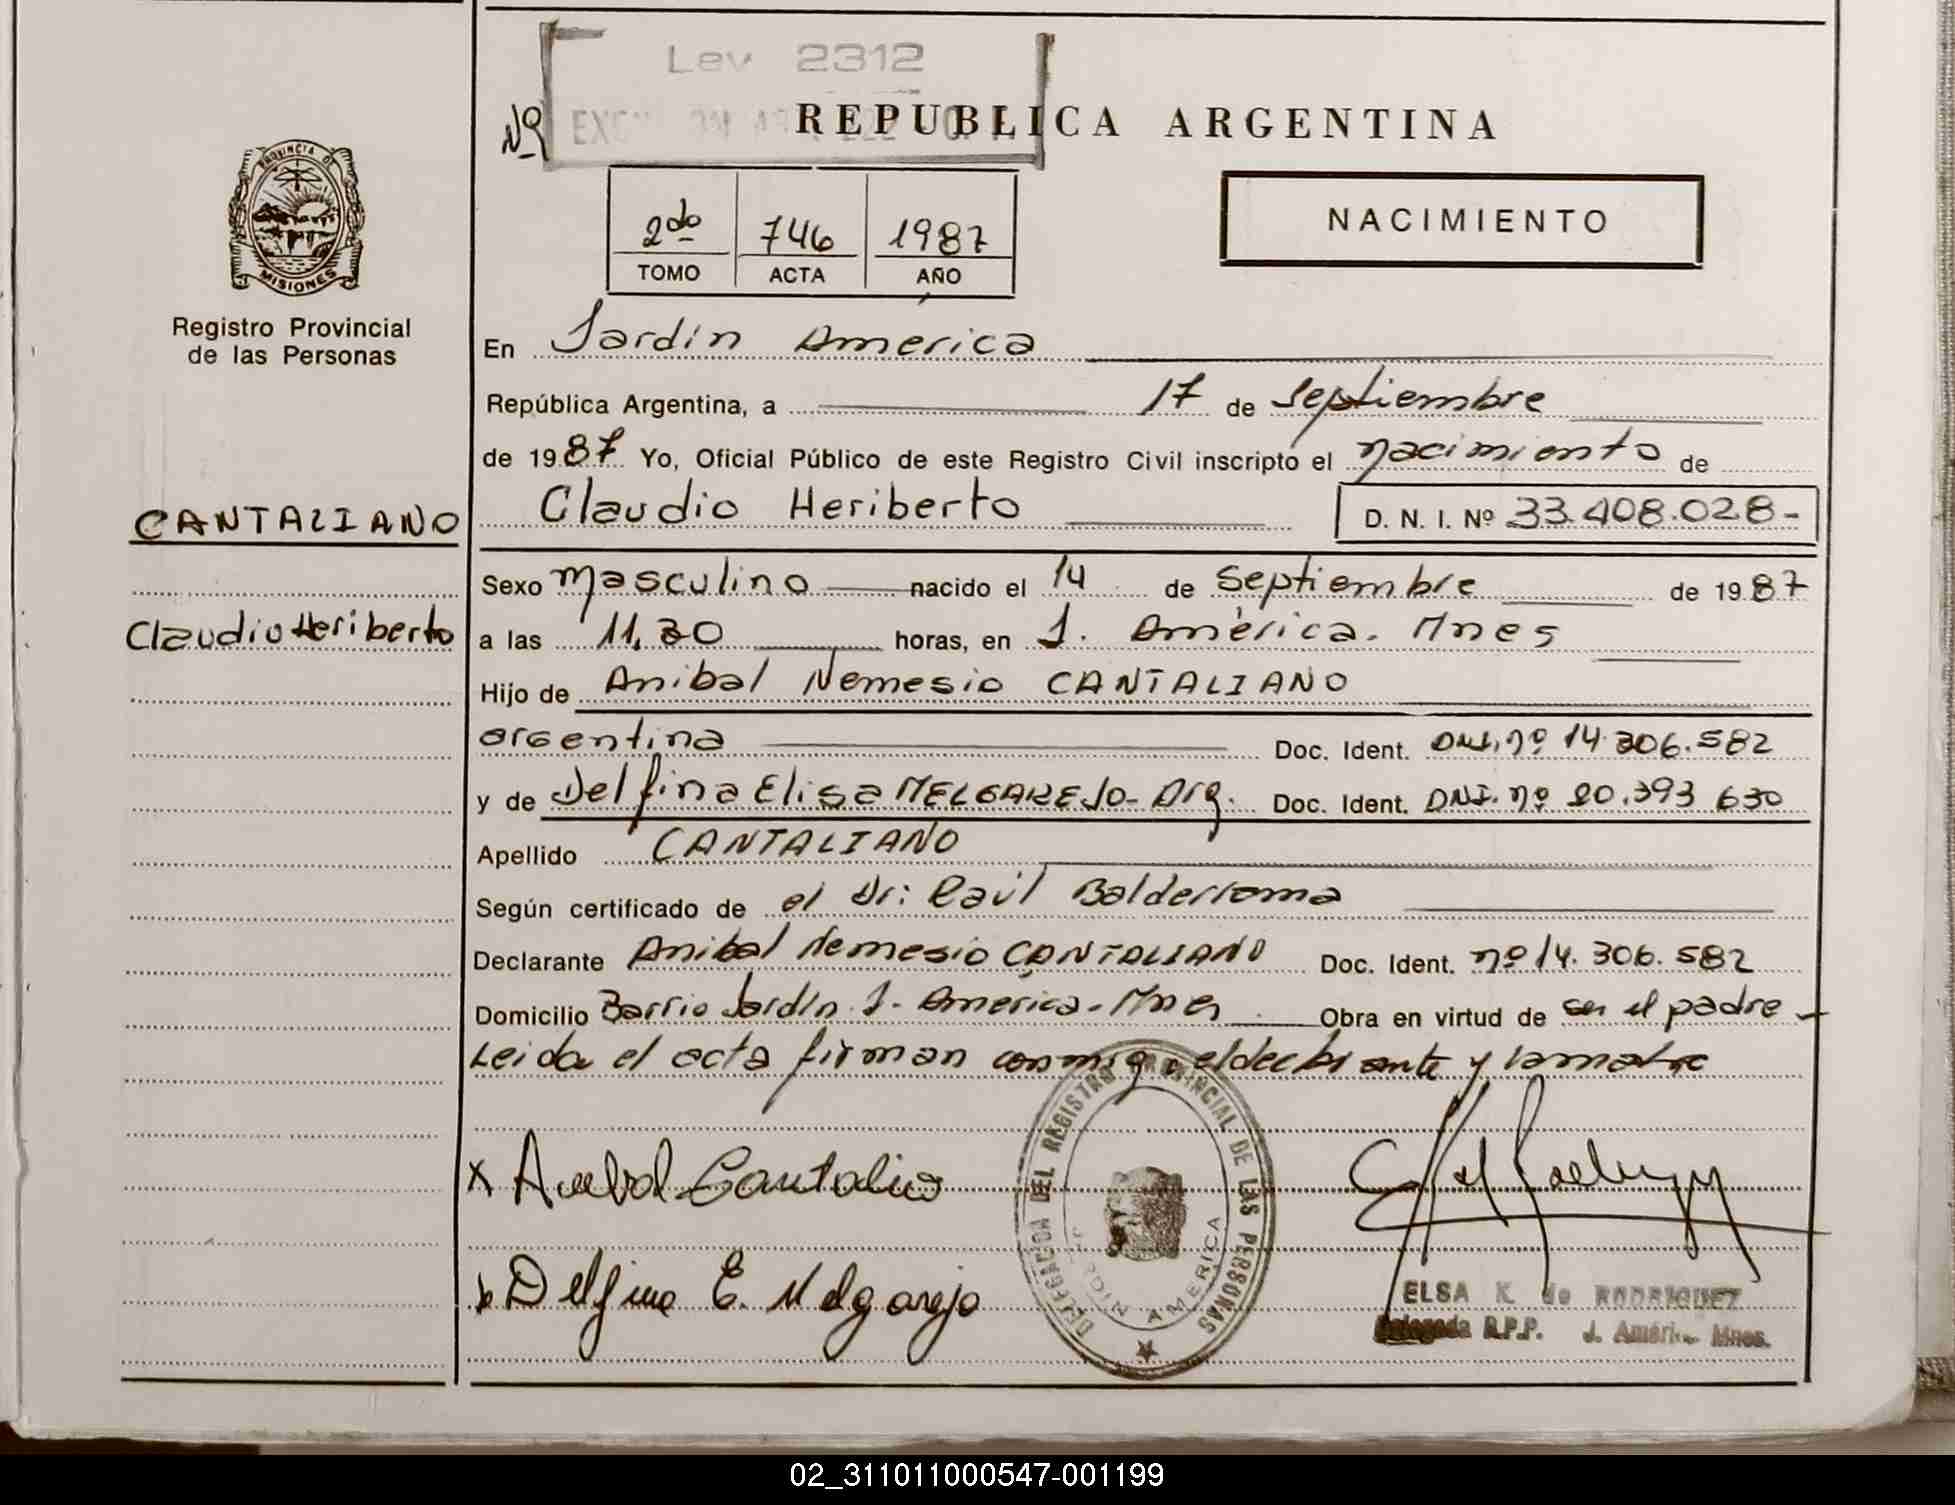 Ley 2312
Nº
REPUBLICA ARGENTINA
PROVINCIA DE
MISIONES
Registro Provincial
de las Personas
2do 746 1987
TOMO ACTA AÑO
NACIMIENTO
En Jardín America
República Argentina, a 17 de septiembre
de 1987 Yo, Oficial Público de este Registro Civil inscripto el nacimiento de
Claudio Heriberto D. N. I. Nº 33.408.028-
CANTALIANO
Claudio Heriberto
Sexo masculino nacido el 14 de septiembre de 1987
a las 11,30 horas, en J. América. Mnes
Hijo de Anibal Nemesio CANTALIANO
argentina Doc. Ident. DNI. nº 14.306.582
y de Delfina Elisa MELGAREJO- Arg. Doc. Ident. DNI. nº 20.393 630
Apellido CANTALIANO
Según certificado de el Dr: Raúl Balderrama
Declarante Anibal Nemesio CANTALIANO Doc. Ident. nº 14.306.582
Domicilio Barrio Jardín J. America-Mnes Obra en virtud de ser el padre
Leida el acta firman conmigo el declarante y la madre
x Anibal Cantaliano
Delfina E. Melgarejo
DELEGACION DEL REGISTRO PROVINCIAL DE LAS PERSONAS
JARDIN AMERICA
ELSA K. de RODRIGUEZ
Delegada R.P.P. J. Améri. Mnes.
02_311011000547-001199